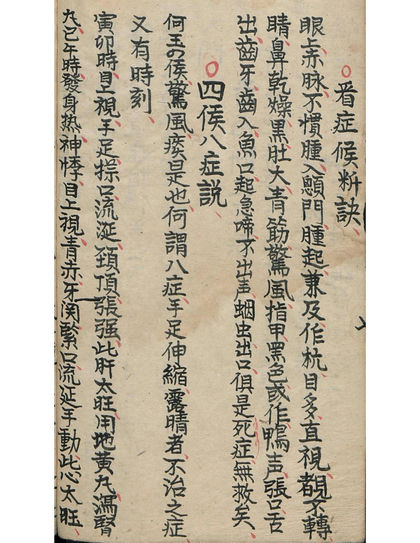 看症候粁訣
眼上赤脉不慣腫入顖門腫起兼及作杭目多直視覩不轉
睛鼻乾燥黑肚大青筋驚風指甲黑色或作鴨声張口舌
出齒牙齒入魚口起急啼不出声蛔虫出口俱是死症無救矣
四候八症説
何王四候驚風痰是也何謂八症手足伸縮露睛者不治之症
又有時刻
寅卯時目上視手足搖口流涎頚頂張强此肝太旺用地黄九瀉腎
九已午時發身热神悸目上視青赤牙関緊口流涎手動此心太旺